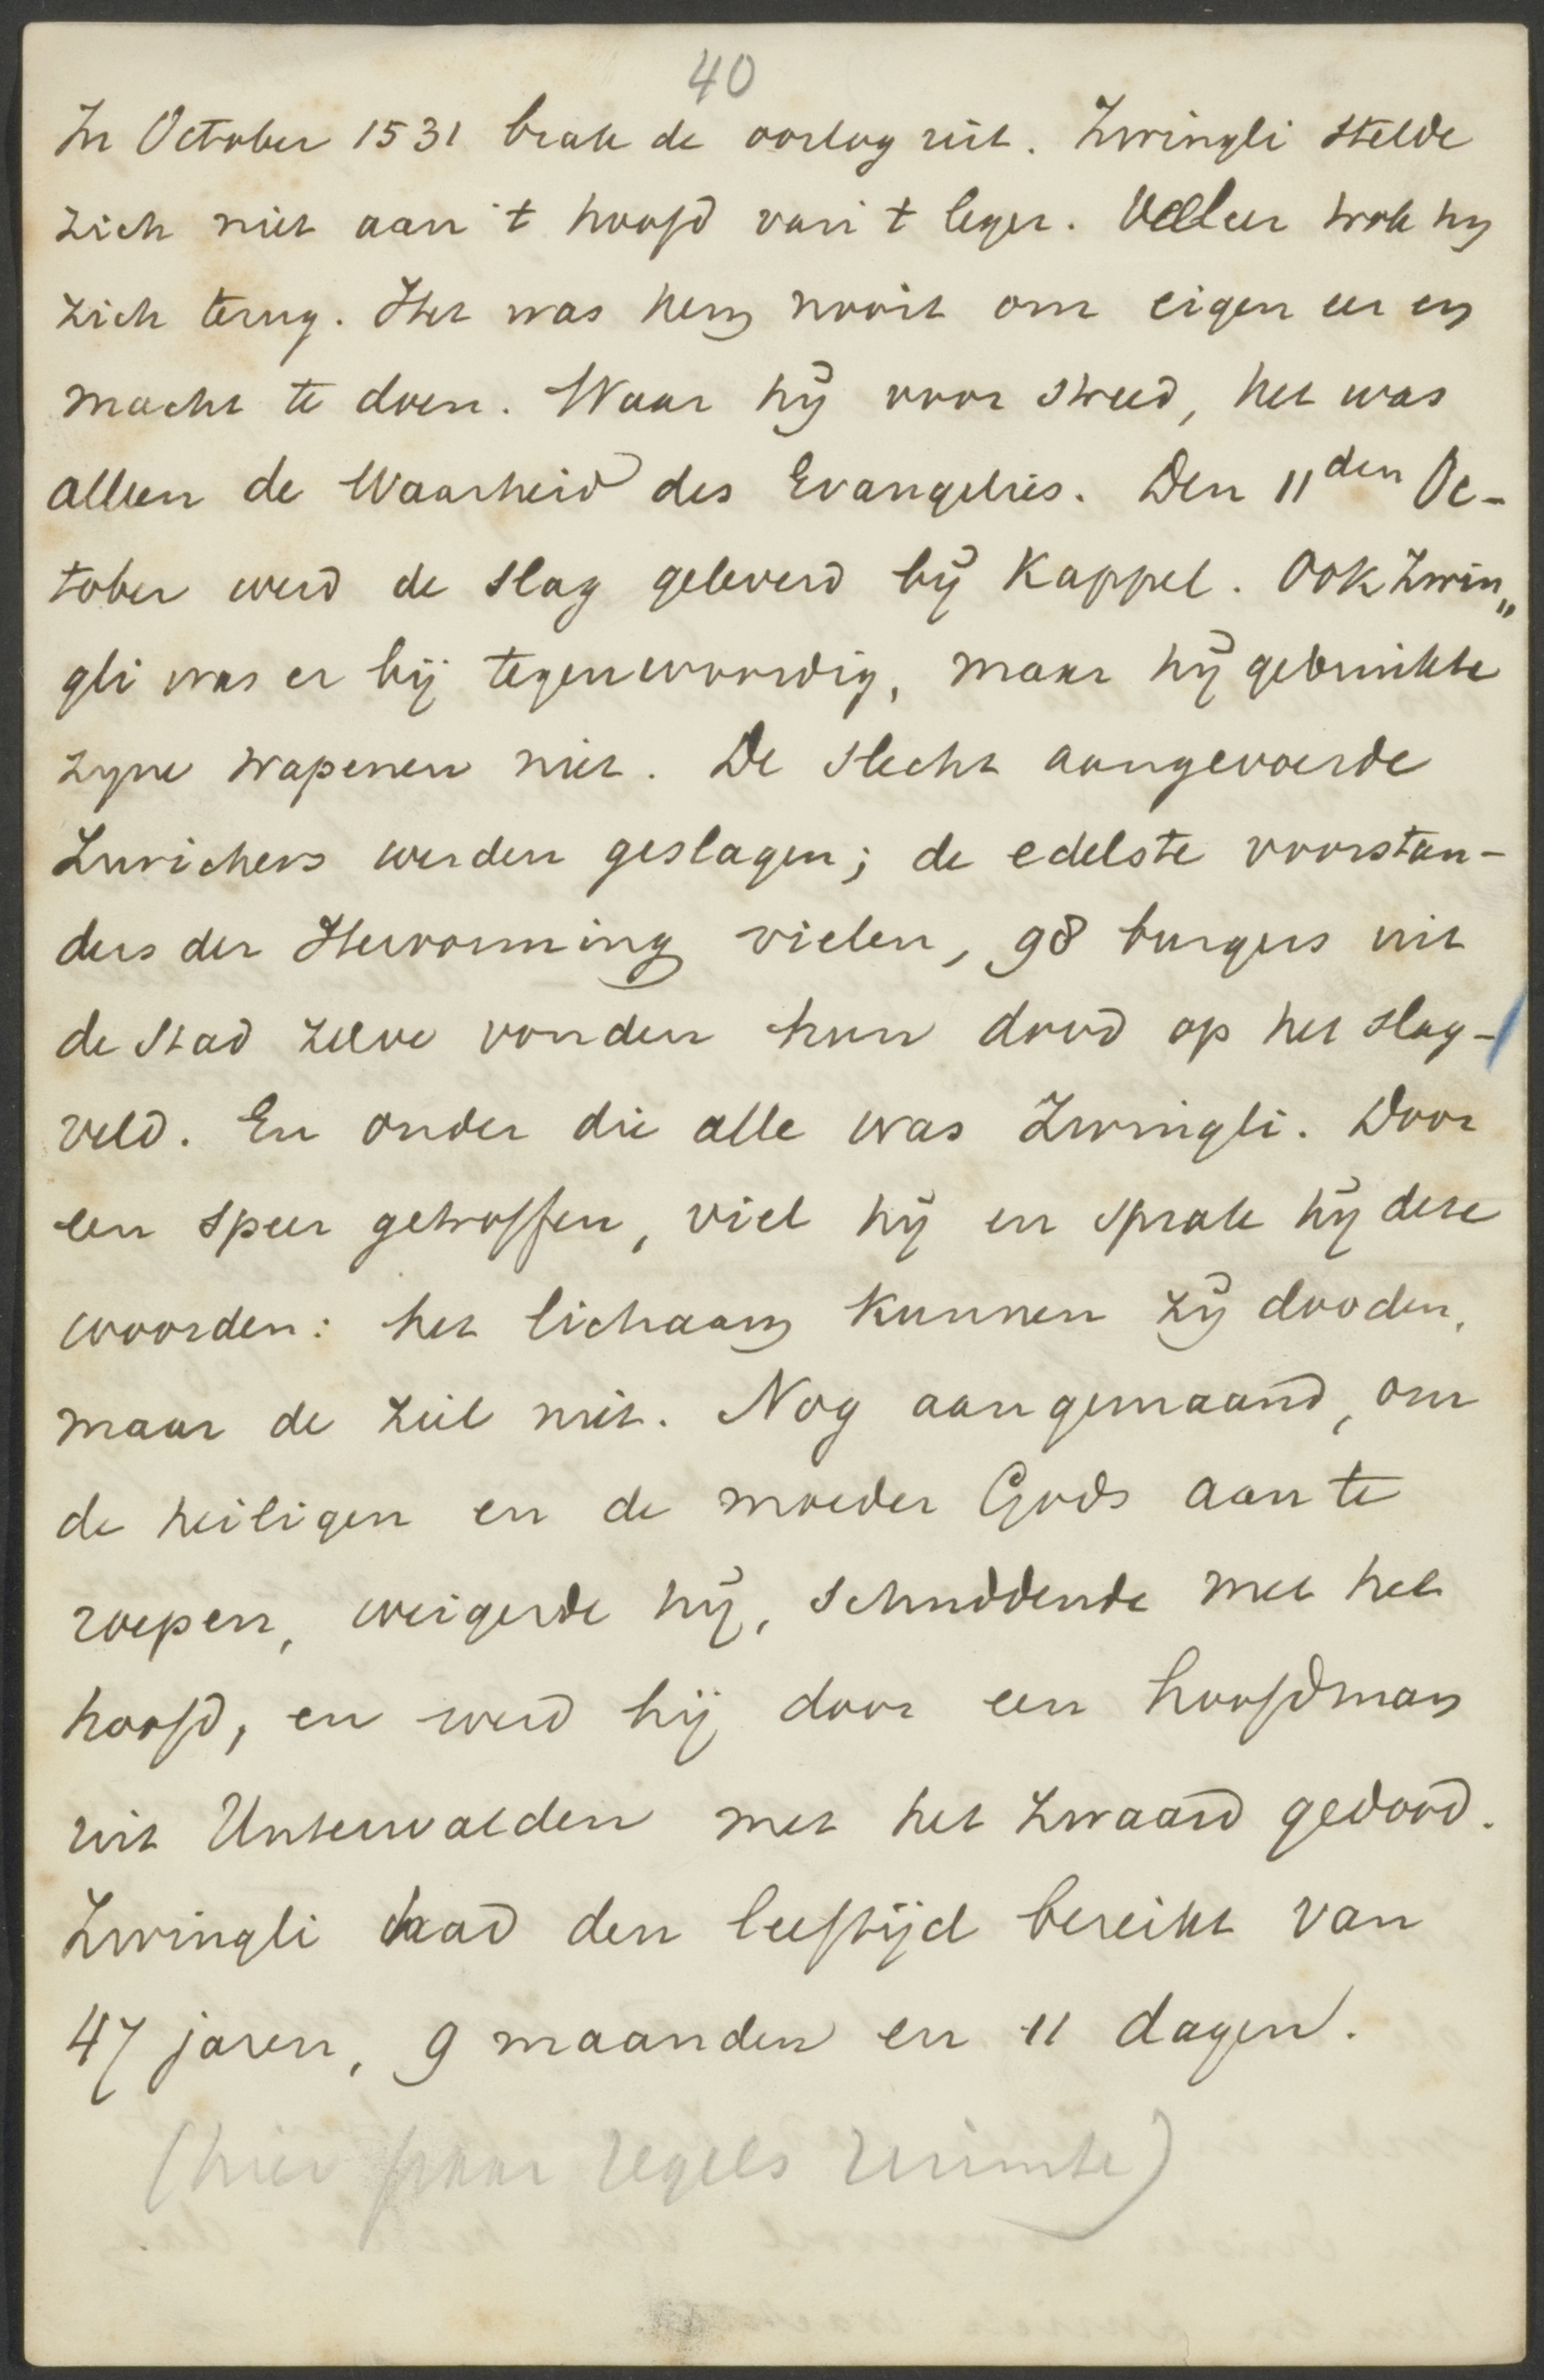 40
In October 1531 brak de oorlog uit. Zwingli stelde
zich niet aan 't hoofd van 't leger. Veeleer trok hy
zich terug. Het was hem nooit om eigen eer en
macht te doen. Waar hij voor streed, het was
alleen de Waarheid des Evangelies. Den 11den Oc-
tober werd de slag geleverd bij Kappel. Ook Zwin„
gli was er bij tegenwoordig, maar hij gebruikte
zyne wapenen niet. De slecht aangevoerde
Zurichers werden geslagen; de edelste voorstan-
ders der Hervorming vielen, 98 burgers uit
de Stad zelve vonden hun dood op het slag-
veld. En onder die alle was Zwingli. Door
een speer getroffen, viel hij en sprak hij deze
woorden: het lichaam kunnen zij dooden,
maar de ziel niet. Nog aangemaand, om
de heiligen en de moeder Gods aan te
roepen, weigerde hij, schuddende met het
hoofd, en werd hij door een hoofdman
uit Unterwalden met het zwaard gedood.
Zwingli had den leeftijd bereikt van
47 jaren, 9 maanden en 11 dagen.
(hier paar regels ruimte)